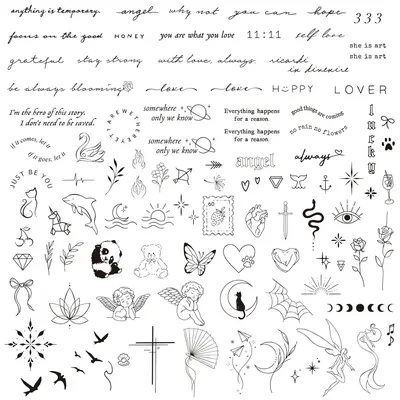 anything is temporary.
angel
why not
you can
hope
333
focus on the good
HONEY
you are what you love
11:11
self love
she is art
she is art
grateful
stay strong
with love, always.
be always blooming
love
love
HAPPY
LOVER
I'm the hero of this story.
I don't need to be saved.
somewhere
only we know
Everything happens
for a reason.
good things are coming
lucky
if it comes, let it
if it goes, let it
somewhere
only we know
Everything happens
for a reason.
no rain no flowers
angel
always
JUST BE YOU